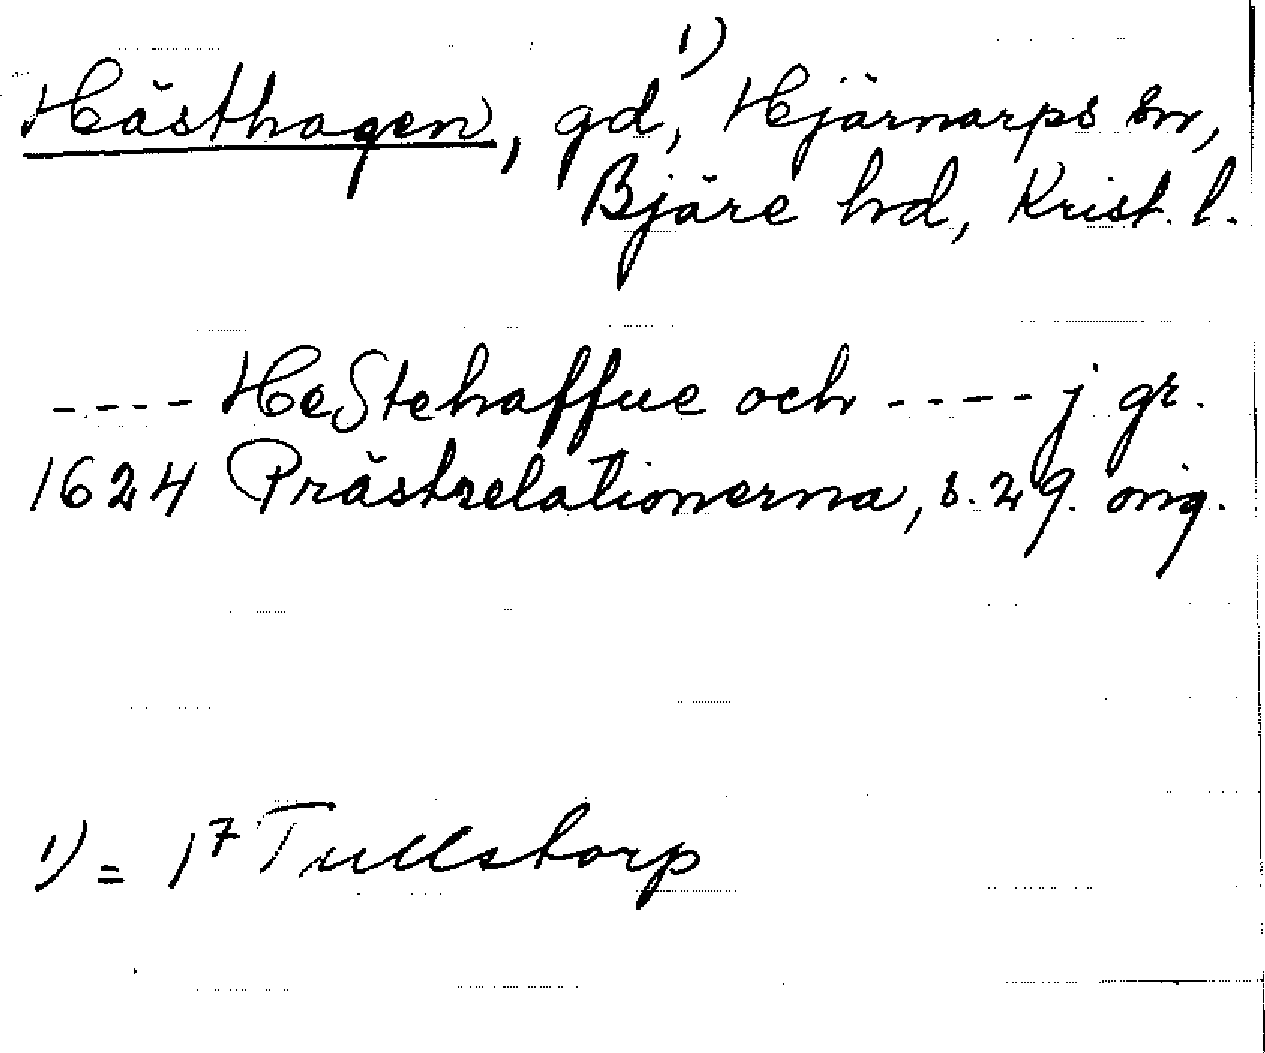 Hästhagen, gd,¹⁾ Hjärnarps sn,
Bjäre hd, Krist. l.
---- HeStehaffue och ---- j gr.
1624 Prästrelationerna, s. 29. orig.
1) = 1⁷ Tullstorp